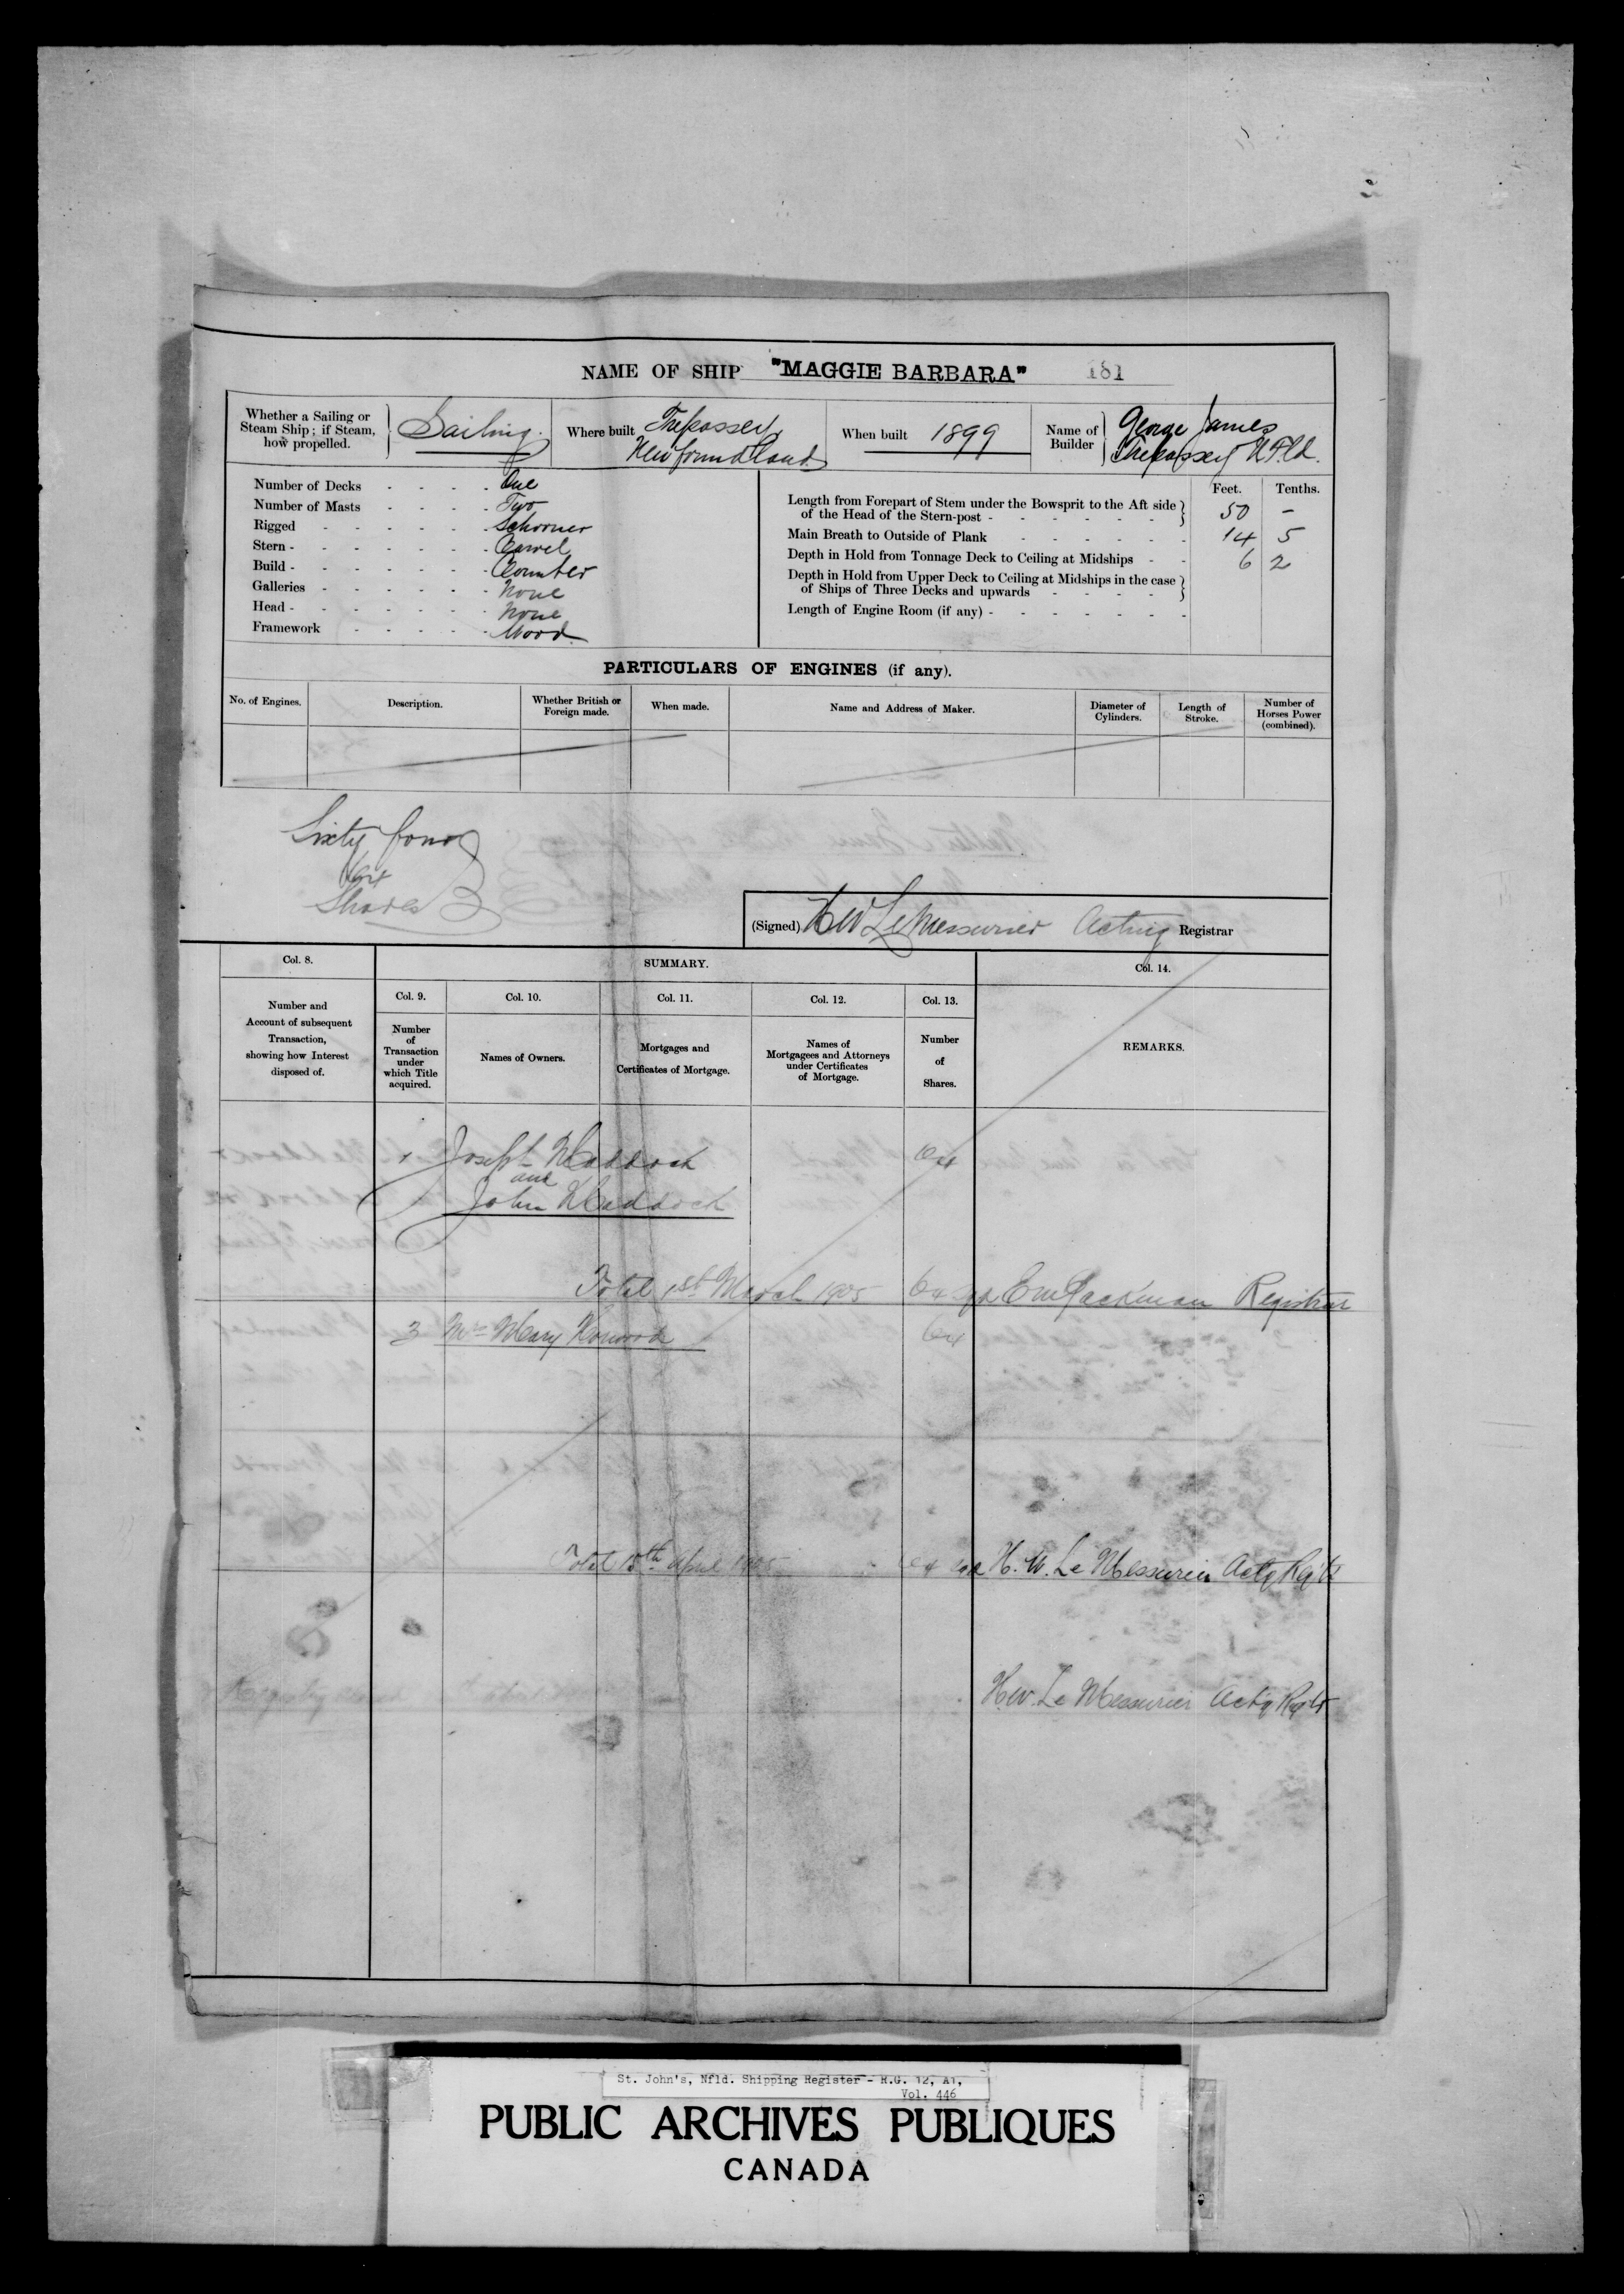 NAME OF SHIP "MAGGIE BARBARA" 181
Whether a Sailing or Steam Ship; if Steam, how propelled. Sailing.
Where built Trepassey, Newfoundland
When built 1899
Name of Builder George James Trepassey N.F.ld.
Number of Decks One
Number of Masts Two
Rigged Schooner
Stern - Carvel
Build - Counter
Galleries None
Head - None
Framework Wood.
Feet. Tenths.
Length from Forepart of Stem under the Bowsprit to the Aft side of the Head of the Stern-post - 50 -
Main Breath to Outside of Plank 14 5
Depth in Hold from Tonnage Deck to Ceiling at Midships 6 2
Depth in Hold from Upper Deck to Ceiling at Midships in the case of Ships of Three Decks and upwards
Length of Engine Room (if any) -
PARTICULARS OF ENGINES (if any).
No. of Engines. Description. Whether British or Foreign made. When made. Name and Address of Maker. Diameter of Cylinders. Length of Stroke. Number of Horses Power (combined).
Sixty four
64
Shares
(Signed) HW LeMessurier Acting Registrar
Col. 8. SUMMARY. Col. 14.
Col. 9. Col. 10. Col. 11. Col. 12. Col. 13.
Number and Account of subsequent Transaction, showing how Interest disposed of.
Number of Transaction under which Title acquired.
Names of Owners.
Mortgages and Certificates of Mortgage.
Names of Mortgagees and Attorneys under Certificates of Mortgage.
Number of Shares.
REMARKS.
1 Joseph Maddock 64
and
John Maddock
Total 1st March 1905 64 sgd Registrar
3 Mrs Mary 64
Total 15th April 1905 64 sgd H. W. Le Messurier Actg Rgtr
Registry
H.W. Le Messurier Actg Rgtr
St. John's, Nfld. Shipping Register - R.G. 12, A1,
Vol. 446
PUBLIC ARCHIVES PUBLIQUES
CANADA